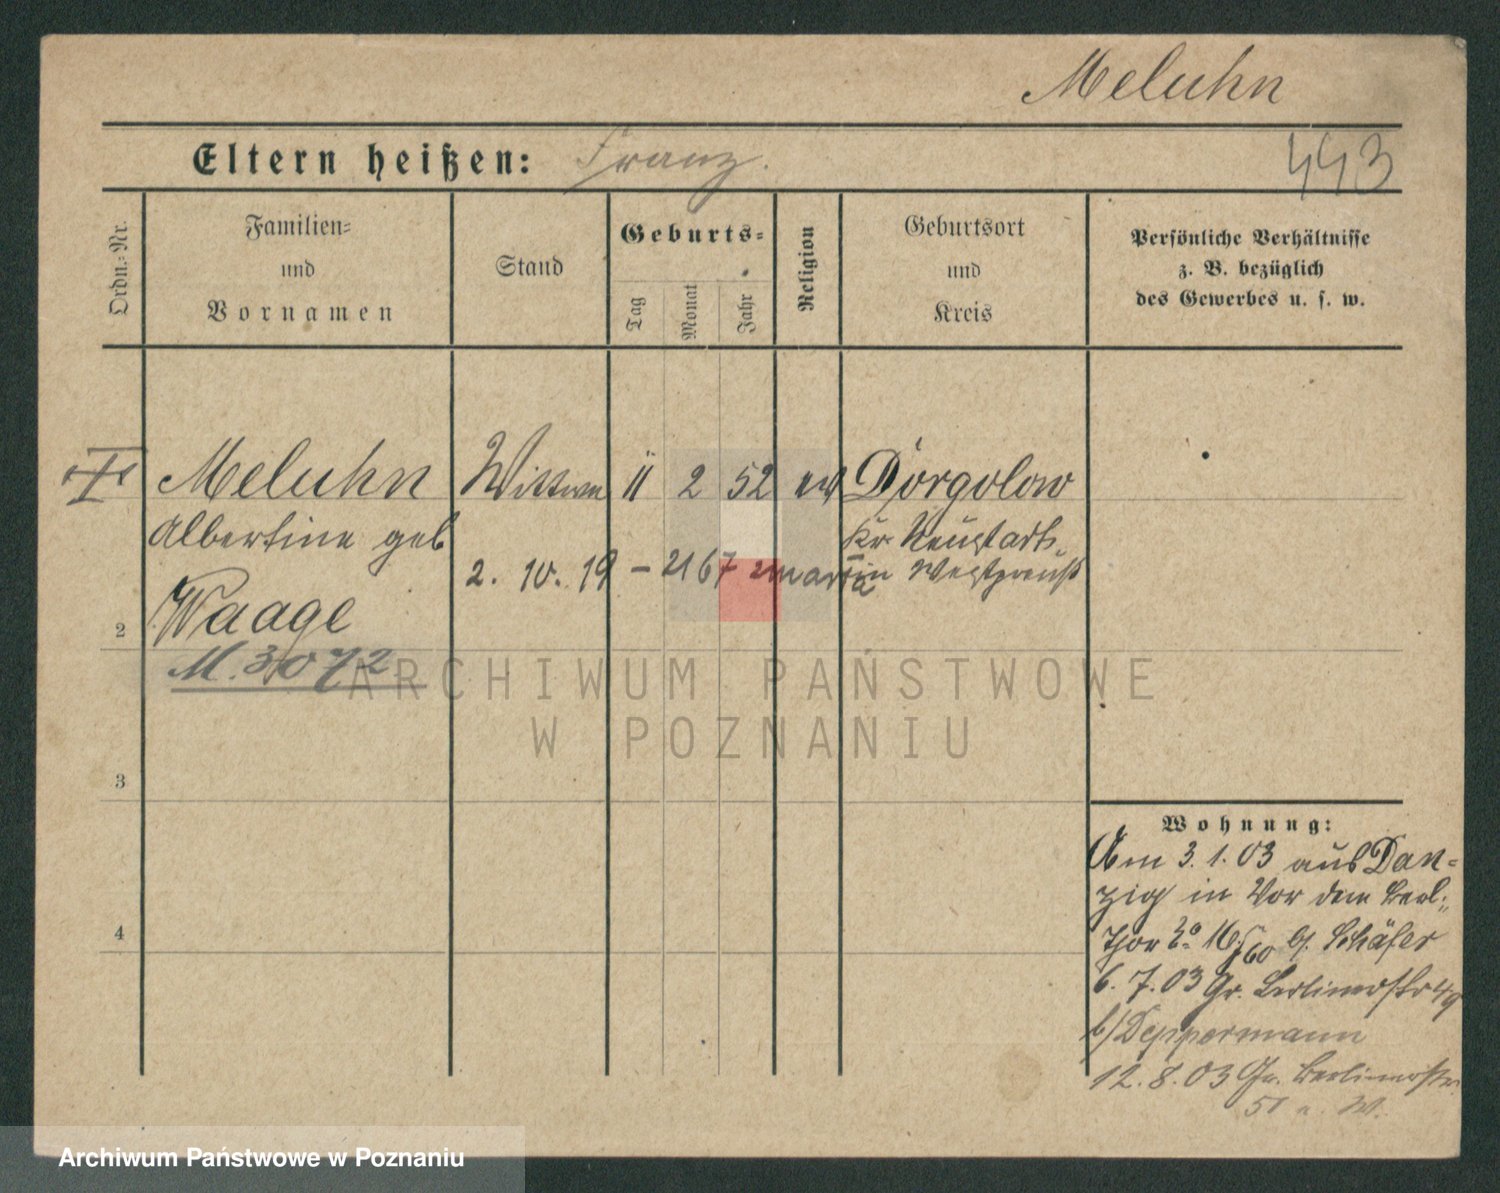 Meluhn
Eltern heißen: Franz.
443
Ordn.-Nr.
Familien-
und
Vornamen
Stand
Geburts-
Tag
Monat
Jahr
Religion
Geburtsort
und
Kreis
Persönliche Verhältnisse
z. B. bezüglich
des Gewerbes u. s. w.
Meluhn Wittwe 11 2 52 ev Dorgolow
Albertine geb
Kr. Neustadt
2. 10. 19 - 2167 in Westpreuß
2 Waage
M. 3072
ARCHIWUM PAŃSTWOWE
W POZNANIU
3
4
Wohnung:
Am 3.1.03 aus Dan-
zig in Vor dem Berl.
Thor 16/60 b. Schäfer
6.7.03 Gr. Berlinerstr 49
b/ Deppermann
12.8.03 Gr. Berlinerstr.
51
Archiwum Państwowe w Poznaniu